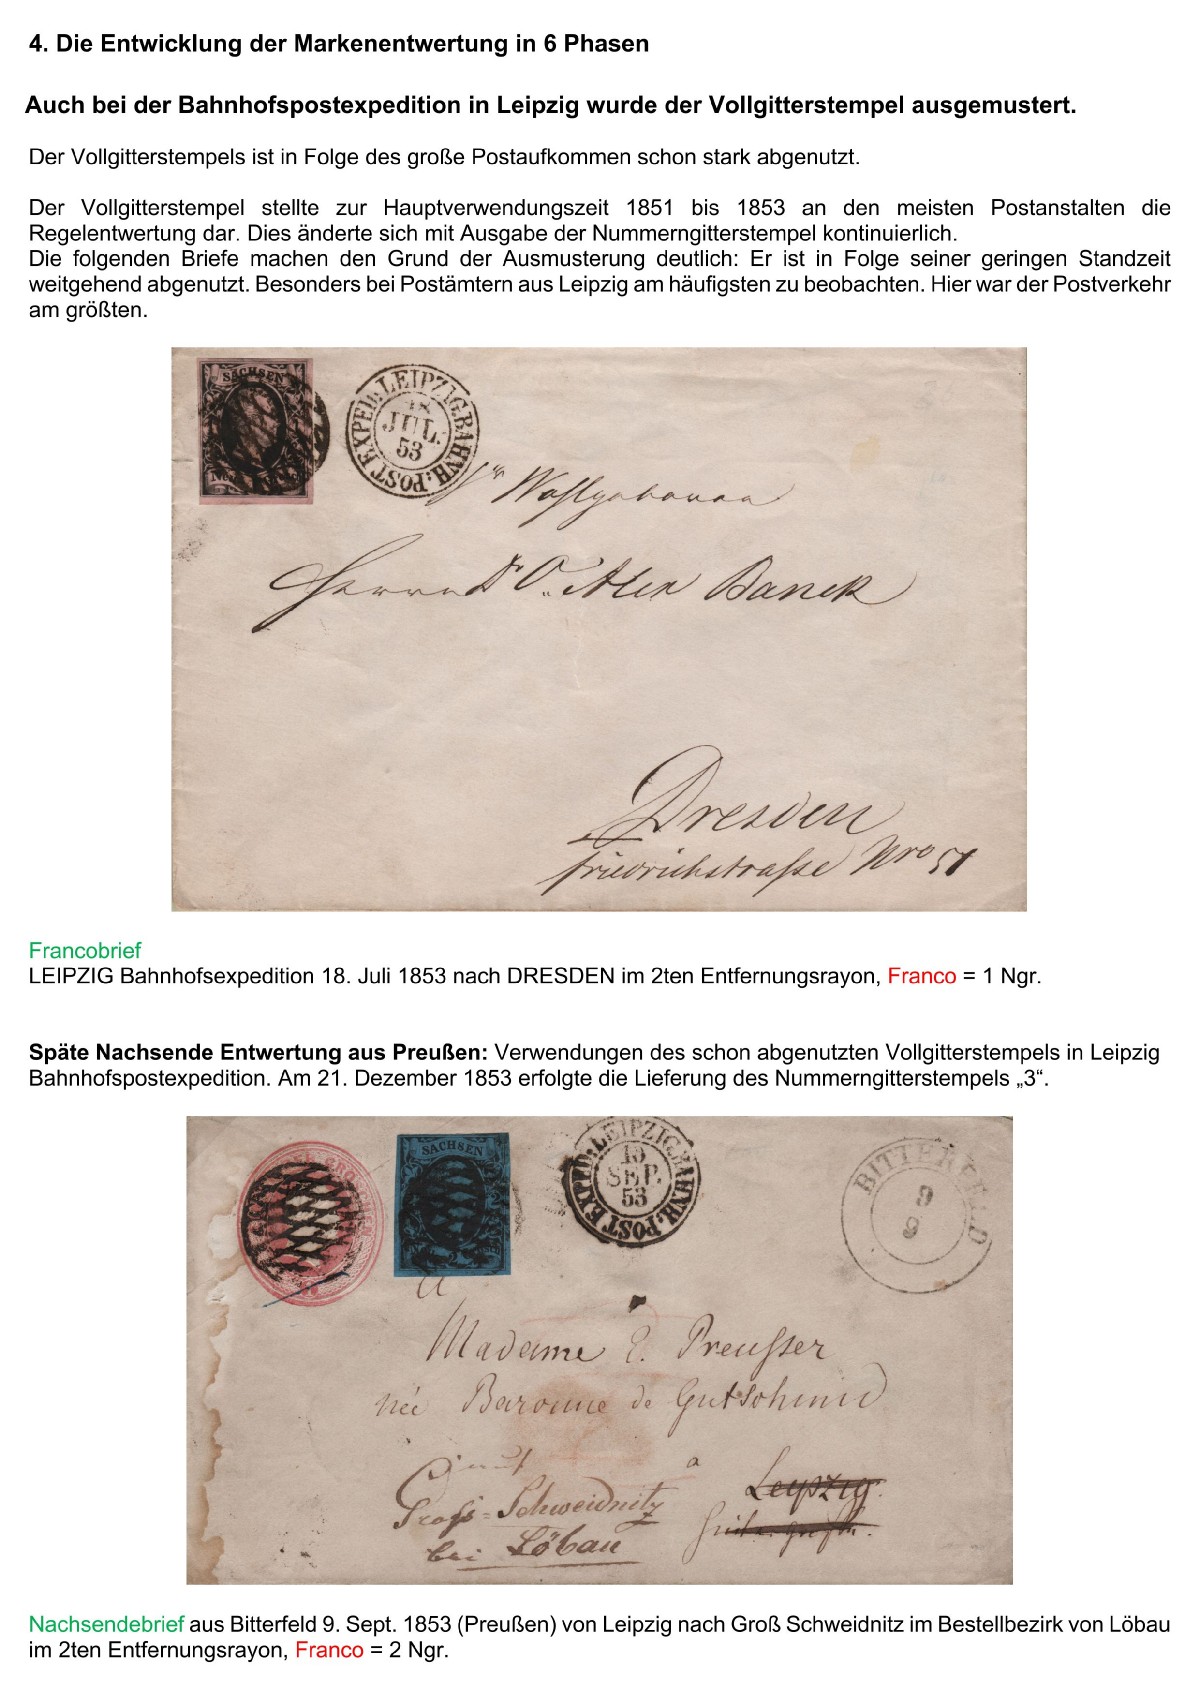 4. Die Entwicklung der Markenentwertung in 6 Phasen
Auch bei der Bahnhofspostexpedition in Leipzig wurde der Vollgitterstempel ausgemustert.
Der Vollgitterstempels ist in Folge des große Postaufkommen schon stark abgenutzt.
Der Vollgitterstempel stellte zur Hauptverwendungszeit 1851 bis 1853 an den meisten Postanstalten die
Regelentwertung dar. Dies änderte sich mit Ausgabe der Nummerngitterstempel kontinuierlich.
Die folgenden Briefe machen den Grund der Ausmusterung deutlich: Er ist in Folge seiner geringen Standzeit
weitgehend abgenutzt. Besonders bei Postämtern aus Leipzig am häufigsten zu beobachten. Hier war der Postverkehr
am größten.
SACHSEN
LEIPZIG.BAHNH.POST EXPED:
18
JUL.
53
Wohlgeboren
Herrn Dr O. Alex Banck
Dresden
Friedrichstraße Nro 51
Francobrief
LEIPZIG Bahnhofsexpedition 18. Juli 1853 nach DRESDEN im 2ten Entfernungsrayon, Franco = 1 Ngr.
Späte Nachsende Entwertung aus Preußen: Verwendungen des schon abgenutzten Vollgitterstempels in Leipzig
Bahnhofspostexpedition. Am 21. Dezember 1853 erfolgte die Lieferung des Nummerngitterstempels „3“.
SACHSEN
LEIPZIG.BAHNH.POST EXPED:
10
SEP.
53
BITTERFELD
9
9
Madame E. Preusser
née Baronne de Gutschmid
a
Leipzig.
Gross-Schweidnitz
bei Löbau
Nachsendebrief aus Bitterfeld 9. Sept. 1853 (Preußen) von Leipzig nach Groß Schweidnitz im Bestellbezirk von Löbau
im 2ten Entfernungsrayon, Franco = 2 Ngr.